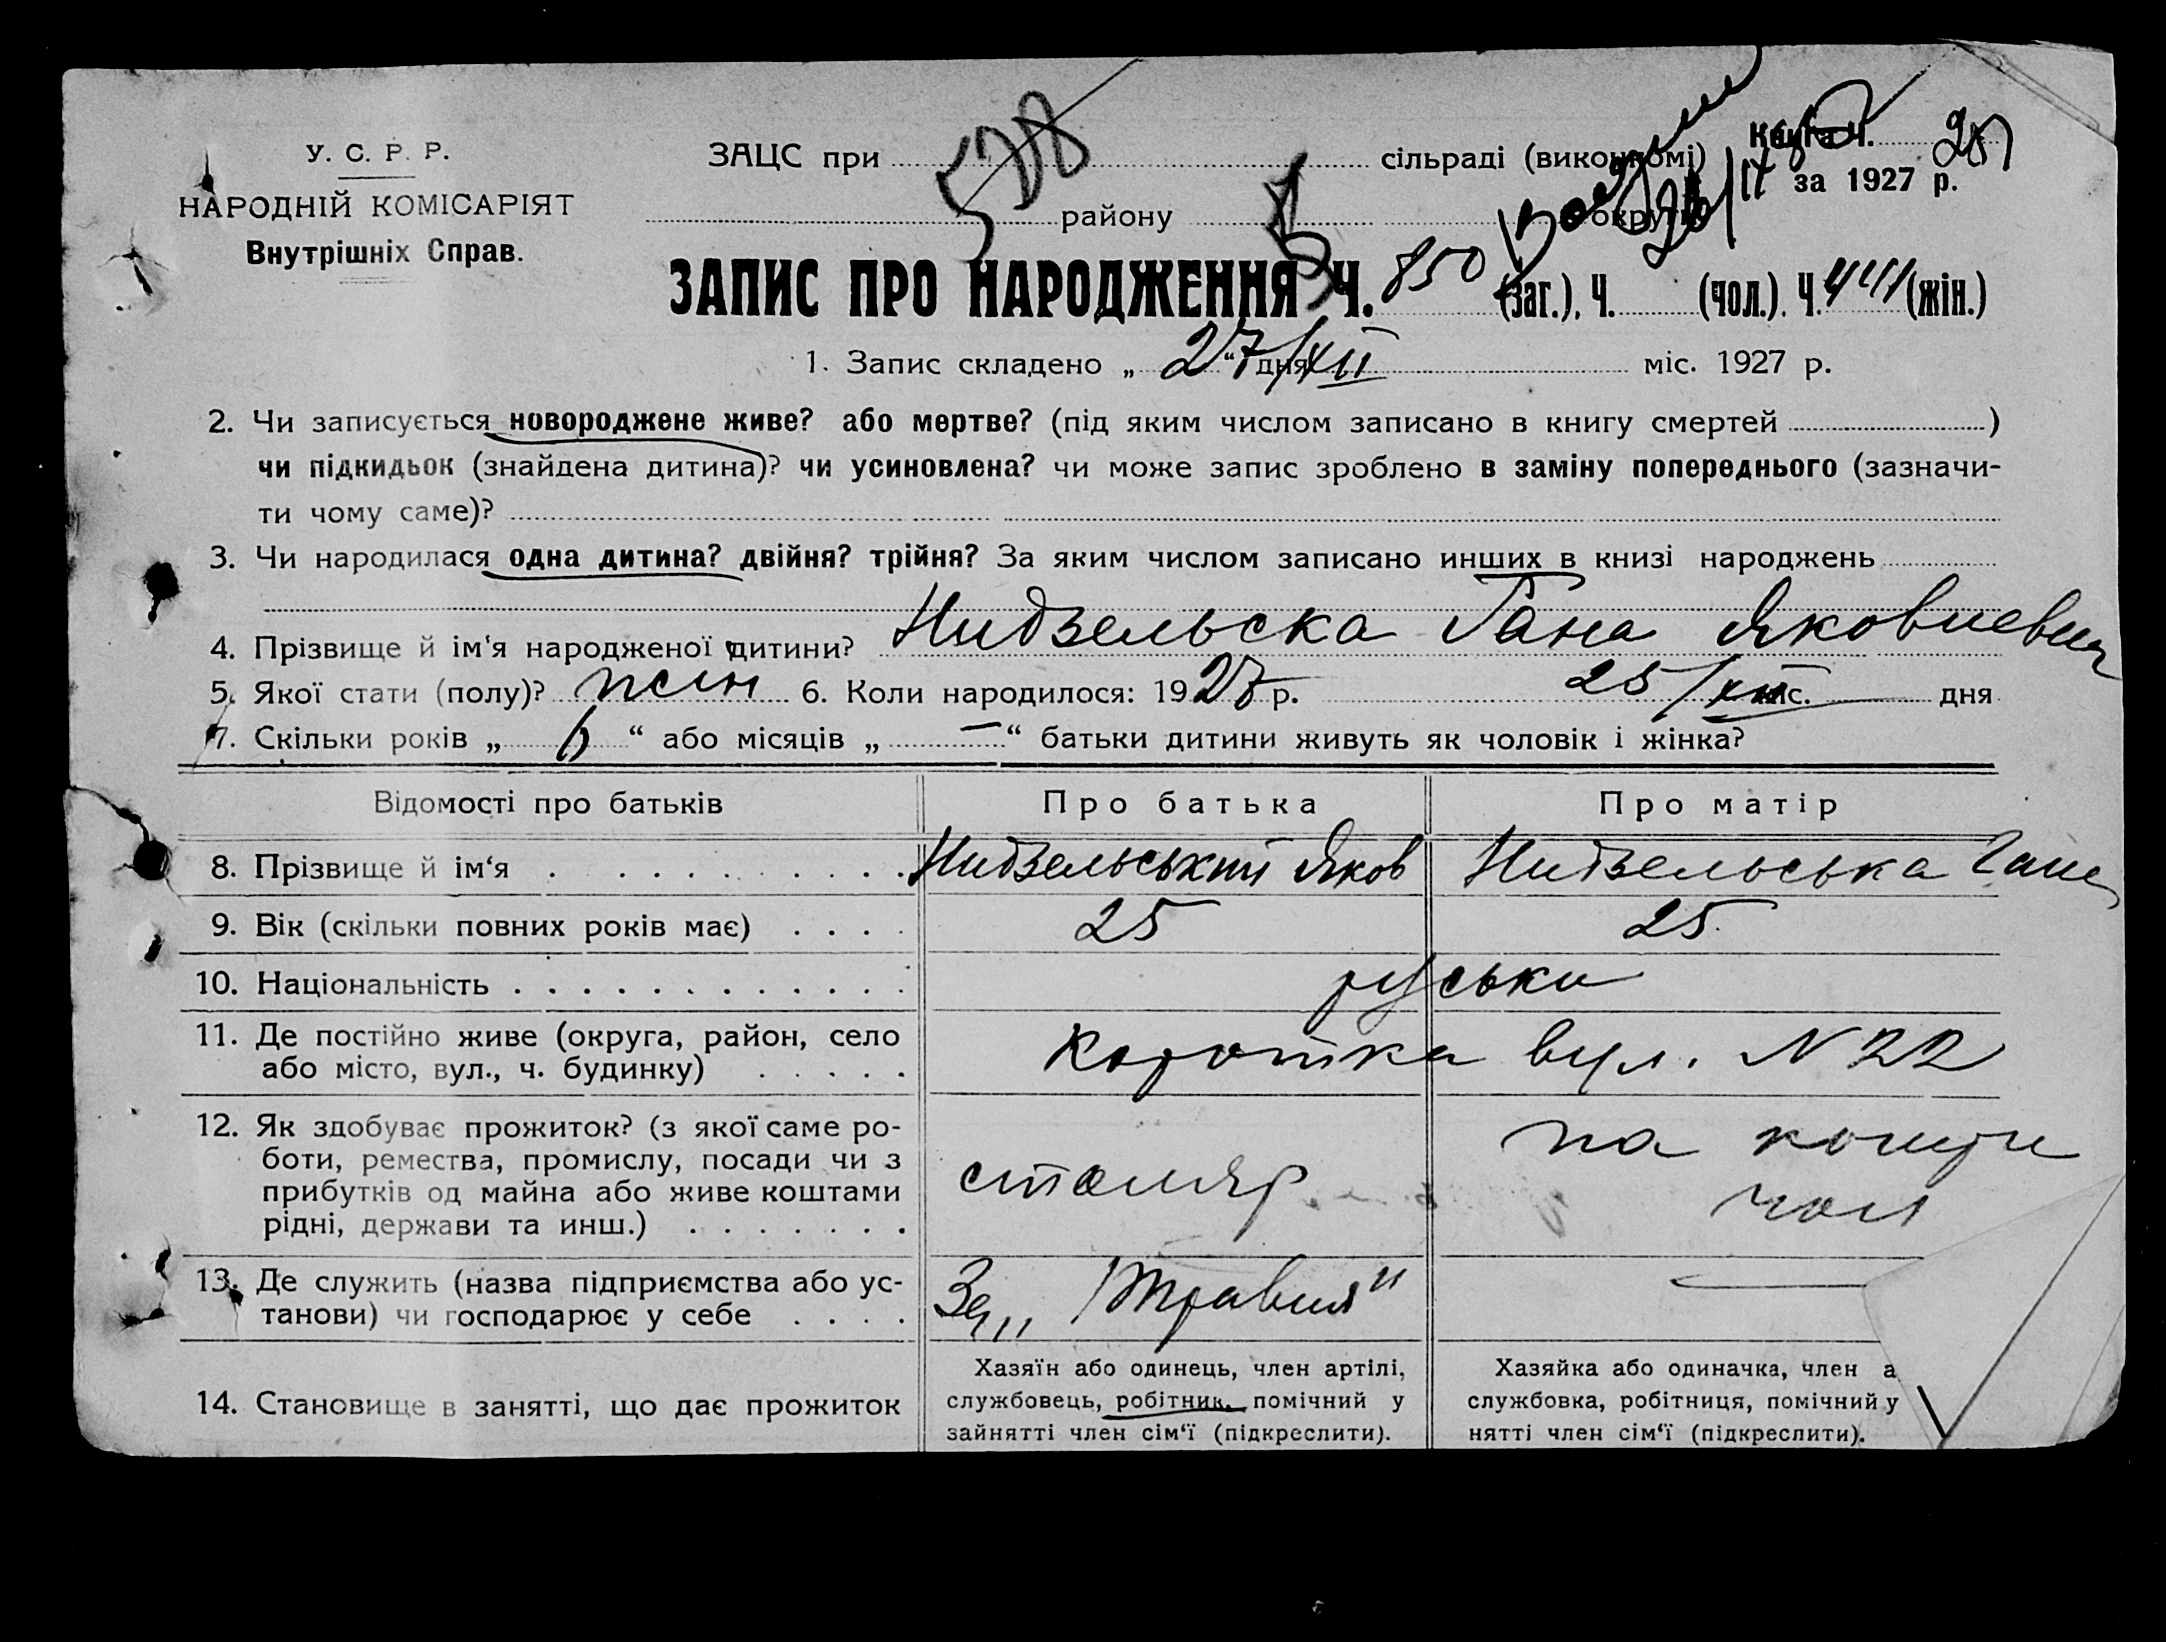 У. С. Р. Р.
НАРОДНІЙ КОМІСАРІЯТ
Внутрішніх Справ.
ЗАЦС при сільраді (виконкомі)
району округи
Книга Ч.
за 1927 р.
ЗАПИС ПРО НАРОДЖЕННЯ Ч. 850 (заг.), Ч. (чол.). Ч. 441 (жін.)
1. Запис складено „ 27/XII “ дня міс. 1927 р.
2. Чи записується новороджене живе? або мертве? (під яким числом записано в книгу смертей )
чи підкидьок (знайдена дитина)? чи усиновлена? чи може запис зроблено в заміну попереднього (зазначи-
ти чому саме)?
3. Чи народилася одна дитина? двійня? трійня? За яким числом записано инших в книзі народжень
4. Прізвище й ім‘я народженої дитини? Нидзельска Гана Яковлевна
5. Якої стати (полу)? жін 6. Коли народилося: 1927 р. 25/XII міс. дня
7. Скільки років „ 6 “ або місяців „ — “ батьки дитини живуть як чоловік і жінка?
Відомості про батьків Про батька Про матір
8. Прізвище й ім‘я Нидзельський Яков Нидзельська Гана
9. Вік (скільки повних років має) 25 25
10. Національність руськи
11. Де постійно живе (округа, район, село
або місто, вул., ч. будинку) Коротка вул. N 22
12. Як здобуває прожиток? (з якої саме ро-
боти, ремества, промислу, посади чи з
прибутків од майна або живе коштами
рідні, держави та инш.)
столяр
на кошти
чол
13. Де служить (назва підприємства або ус-
танови) чи господарює у себе
Зав „1 Травня“ —
14. Становище в занятті, що дає прожиток
Хазяїн або одинець, член артілі,
службовець, робітник, помічний у
зайнятті член сім‘ї (підкреслити).
Хазяйка або одиначка, член а
службовка, робітниця, помічний у
нятті член сім‘ї (підкреслити).